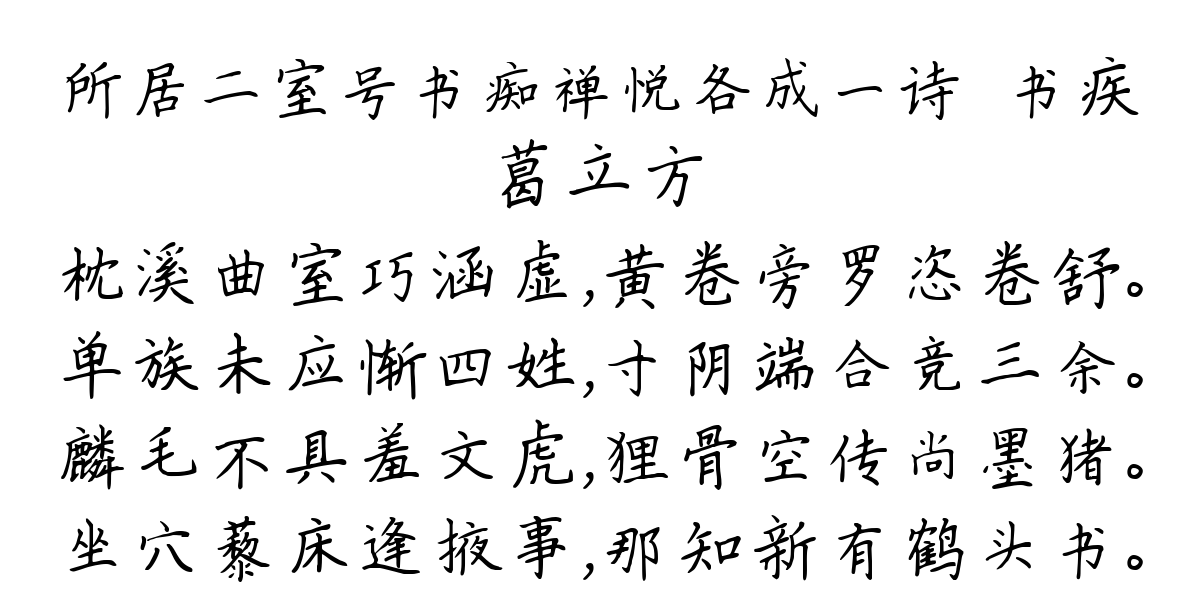 所居二室号书痴禅悦各成一诗 书疾
葛立方
枕溪曲室巧涵虚,黄卷旁罗恣卷舒。
单族未应惭四姓,寸阴端合竞三余。
麟毛不具羞文虎,狸骨空传尚墨猪。
坐穴藜床逢掖事,那知新有鹤头书。